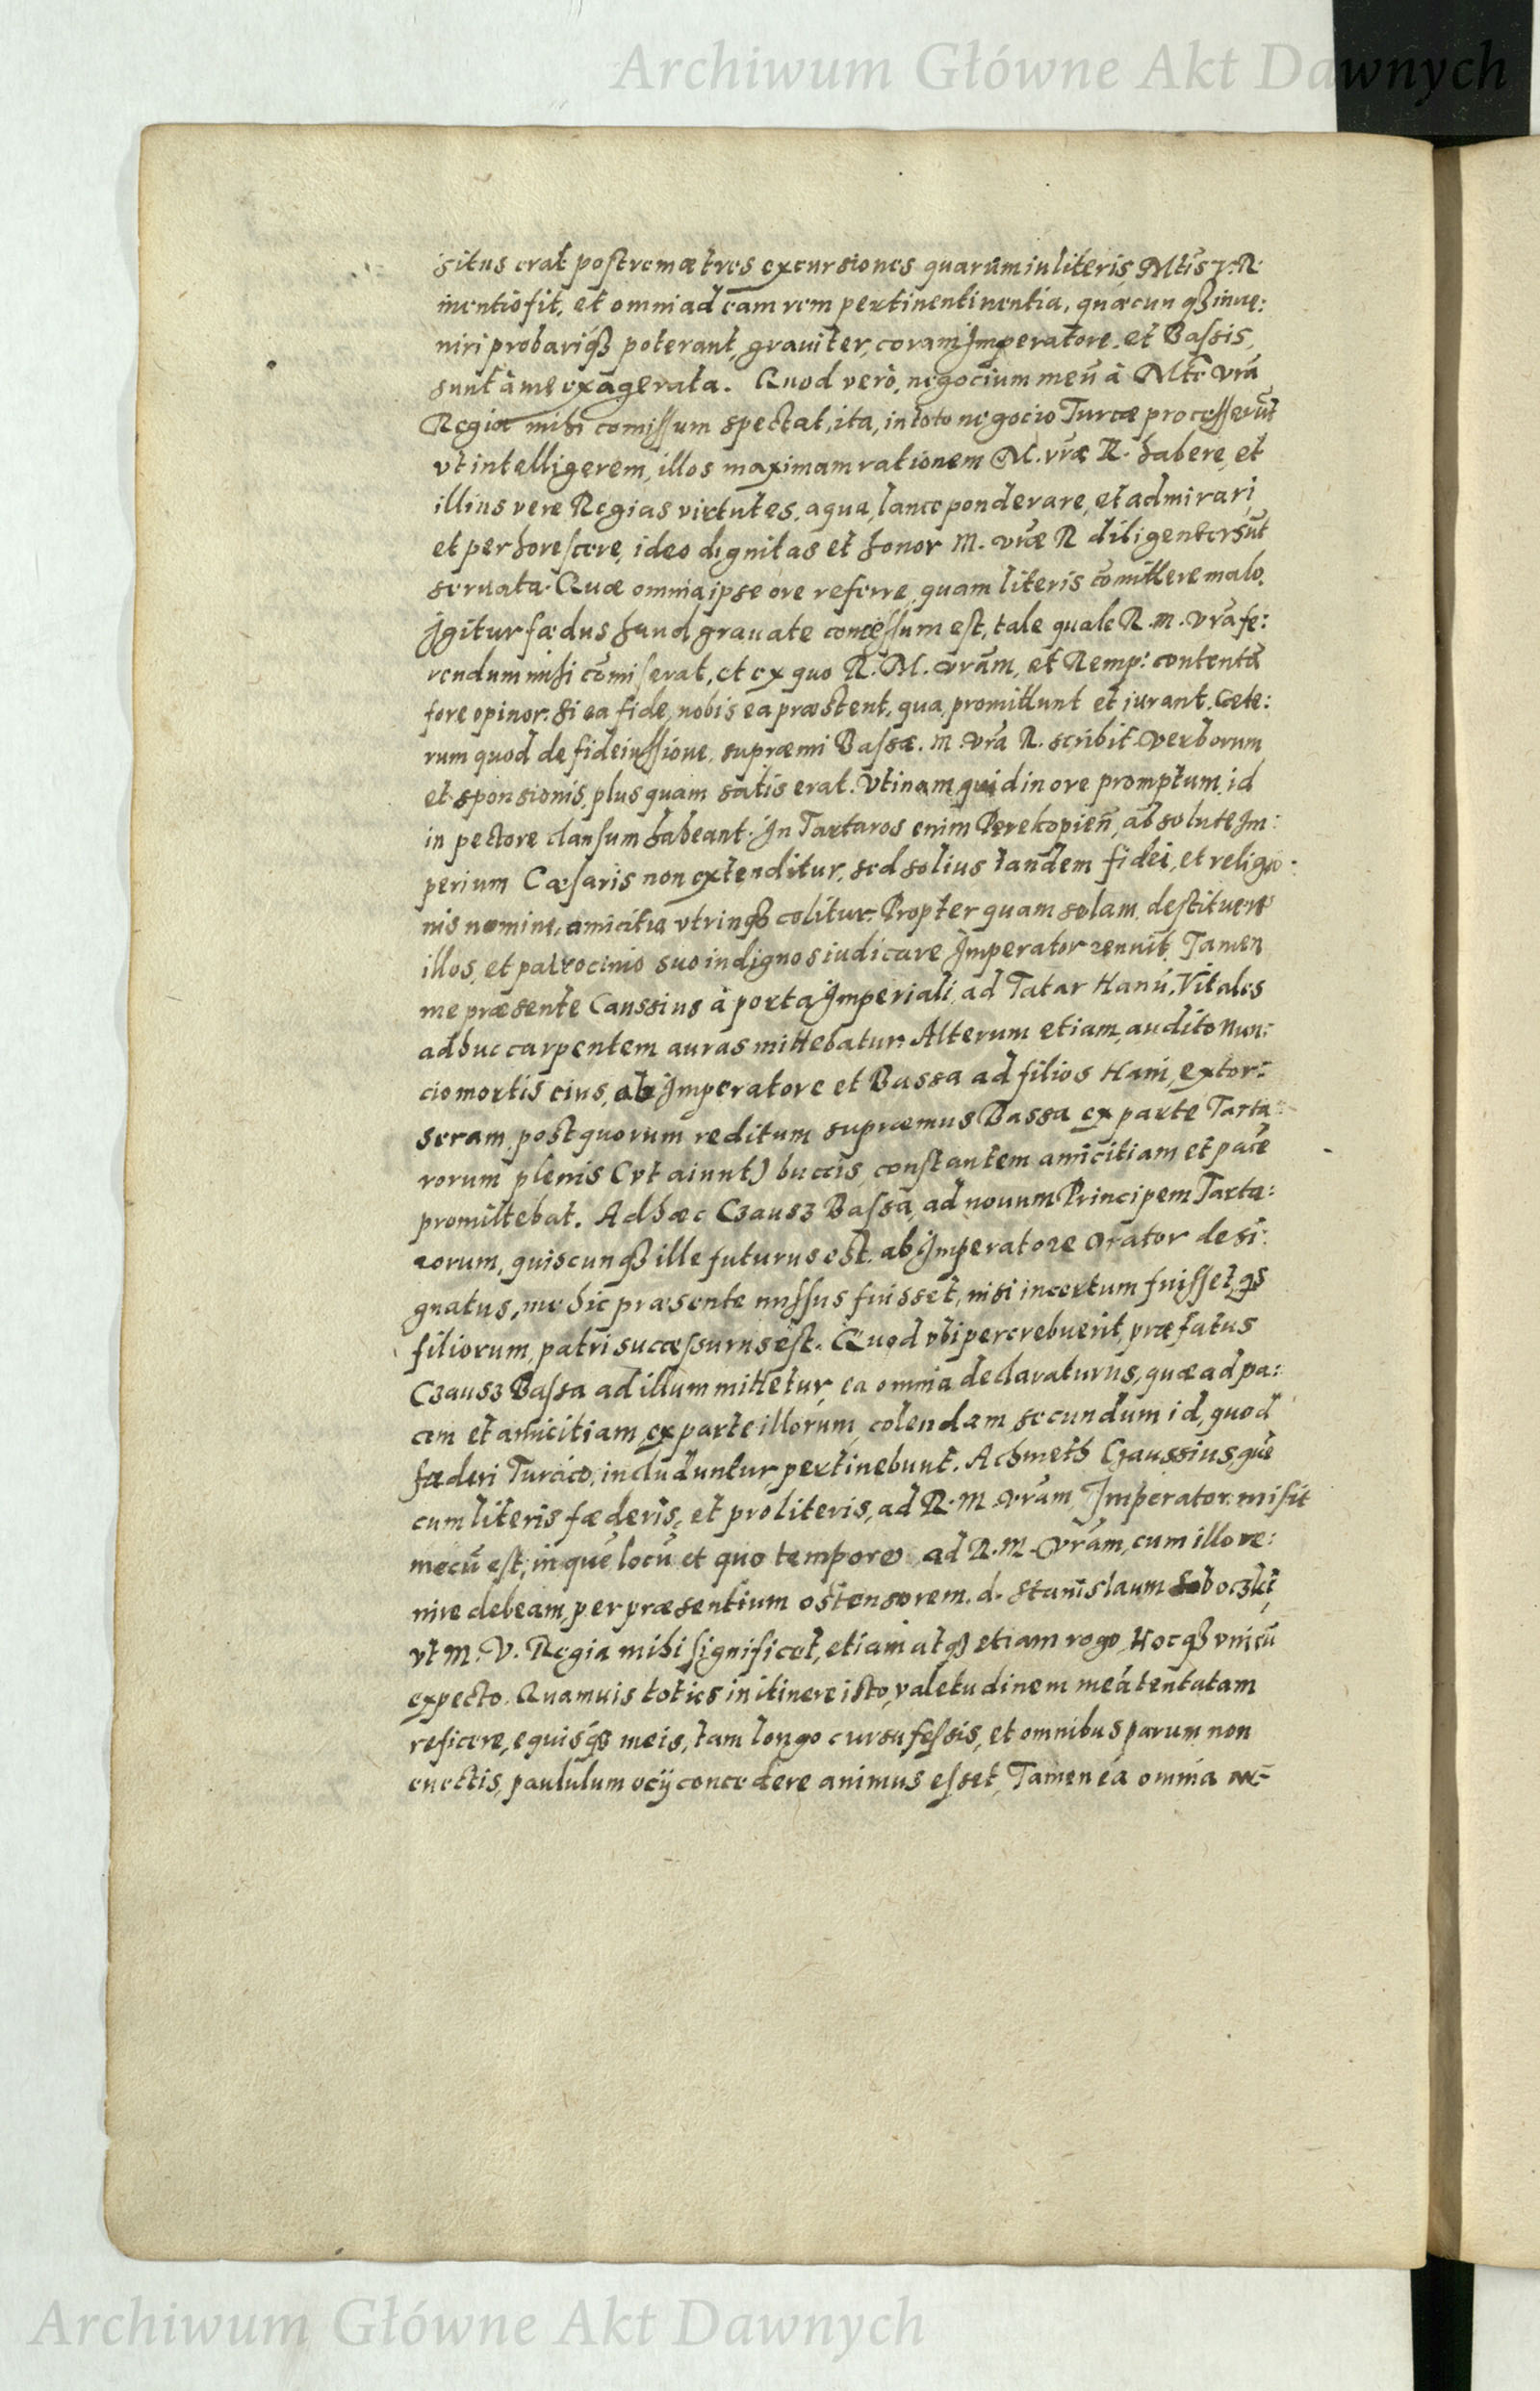 Archiwum Główne Akt Dawnych
situs erat postremæ tres excursiones quarum in literis Mtis v. R.
mentio fit, et omnia ad eam rem pertinenti nentia, quæcunq3 inue:
niri probariq3 poterant, grauiter, coram Imperatore et Bassis,
sunt à me exagerata. Quod verò, negocium meũ à Mte vrã
Regia mihi comissum spectat, ita, in toto negocio Turcæ processerũt
vt intelligerem, illos maximam rationem M. vræ R. habere, et
illius vere Regias virtutes, aqua, lance ponderare, et admirari,
et perhorescere, ideo dignitas et honor M. vræ R diligenter sũt
seruata. Quæ omnia ipse ore referre, quam literis cõmittere malo.
Igitur fædus haud grauate concessum est, tale quale R. M. vrã fe:
rendum mihi cõmiserat, et ex quo R. M. vrãm, et Remp: contentã
fore opinor. Si ea fide, nobis ea præstent, qua promittunt et iurant. Cete:
rum quod de fideiussione, supræmi Bassæ. M. vrã R. scribit verborum
et sponsionis, plus quam satis erat. Vtinam quid in ore promptum, id
in pectore clausum habeant. In Tartaros enim Perekopieñ, absolute Im:
perium Cæsaris non extenditur, sed solius tandem fidei, et religio:
nis nomine, amicitia vtrinq3 colitur. Propter quam solam, destituere
illos, et patrocinio suo indignos iudicare Imperator renuit. Tamen
me præsente Caussius à porta Imperiali, ad Tatar Hanũ, Vitales
adhuc carpentem auras mittebatur. Alterum etiam, audito nun:
cio mortis eius, ab Imperatore et Bassa ad filios Hani, extor:
seram, post quorum reditum supræmus Bassa ex parte Tarta:
rorum plenis (vt aiunt) buccis, constantem amicitiam et pacẽ
promittebat. Ad hæc Czausz Bassa, ad nouum Principem Tarta:
rorum, quiscunq3 ille futurus est, ab Imperatore orator desi:
gnatus, me hic præsente missus fuisset, nisi incertum fuisset, qs
filiorum, patri successurus est. Quod vbi percrebuerit, præfatus
Czausz Bassa ad illum mittetur, ea omnia declaraturus, quæ ad pa:
cem et amicitiam, ex parte illorum, colendam, secundum id, quod
fæderi Turcico, includuntur, pertinebunt. Achmeth Czaussius, quẽ
cum literis fæderis, et pro literis, ad R. M. vrãm, Imperator misit
mecũ est, in quẽ locũ et quo tempore ad R. M. vrãm, cum illo ve:
nire debeam, per præsentium ostensorem. d. Stanislaum
vt M. V. Regia mihi significet, etiam atq3 etiam rogo, Hocq3 vnicũ
expecto. Quamuis toties in itinere isto, valetudinem meã tentatam
reficere, equisq3 meis, tam longo cursu fessis, et omnibus parum non
enectis, paululum ocij concedere animus esset, Tamen ea omnia
Archiwum Główne Akt Dawnych